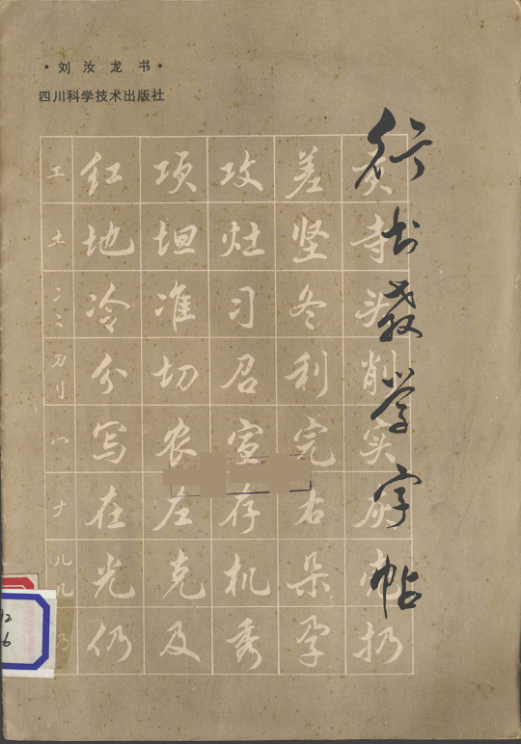 ·刘汝龙书·
四川科学技术出版社
行书教学字帖
工 红 项 攻 差
土 地 坦 灶 坚 寺
冫 冷 准 习 冬 头
刀 刂 分 切 召 利 削
冖 写 农 宣 完 实
𠂇 在 左 存 右 灰
儿 几 光 克 机 朵
乃 仍 及 秀 孕 扔